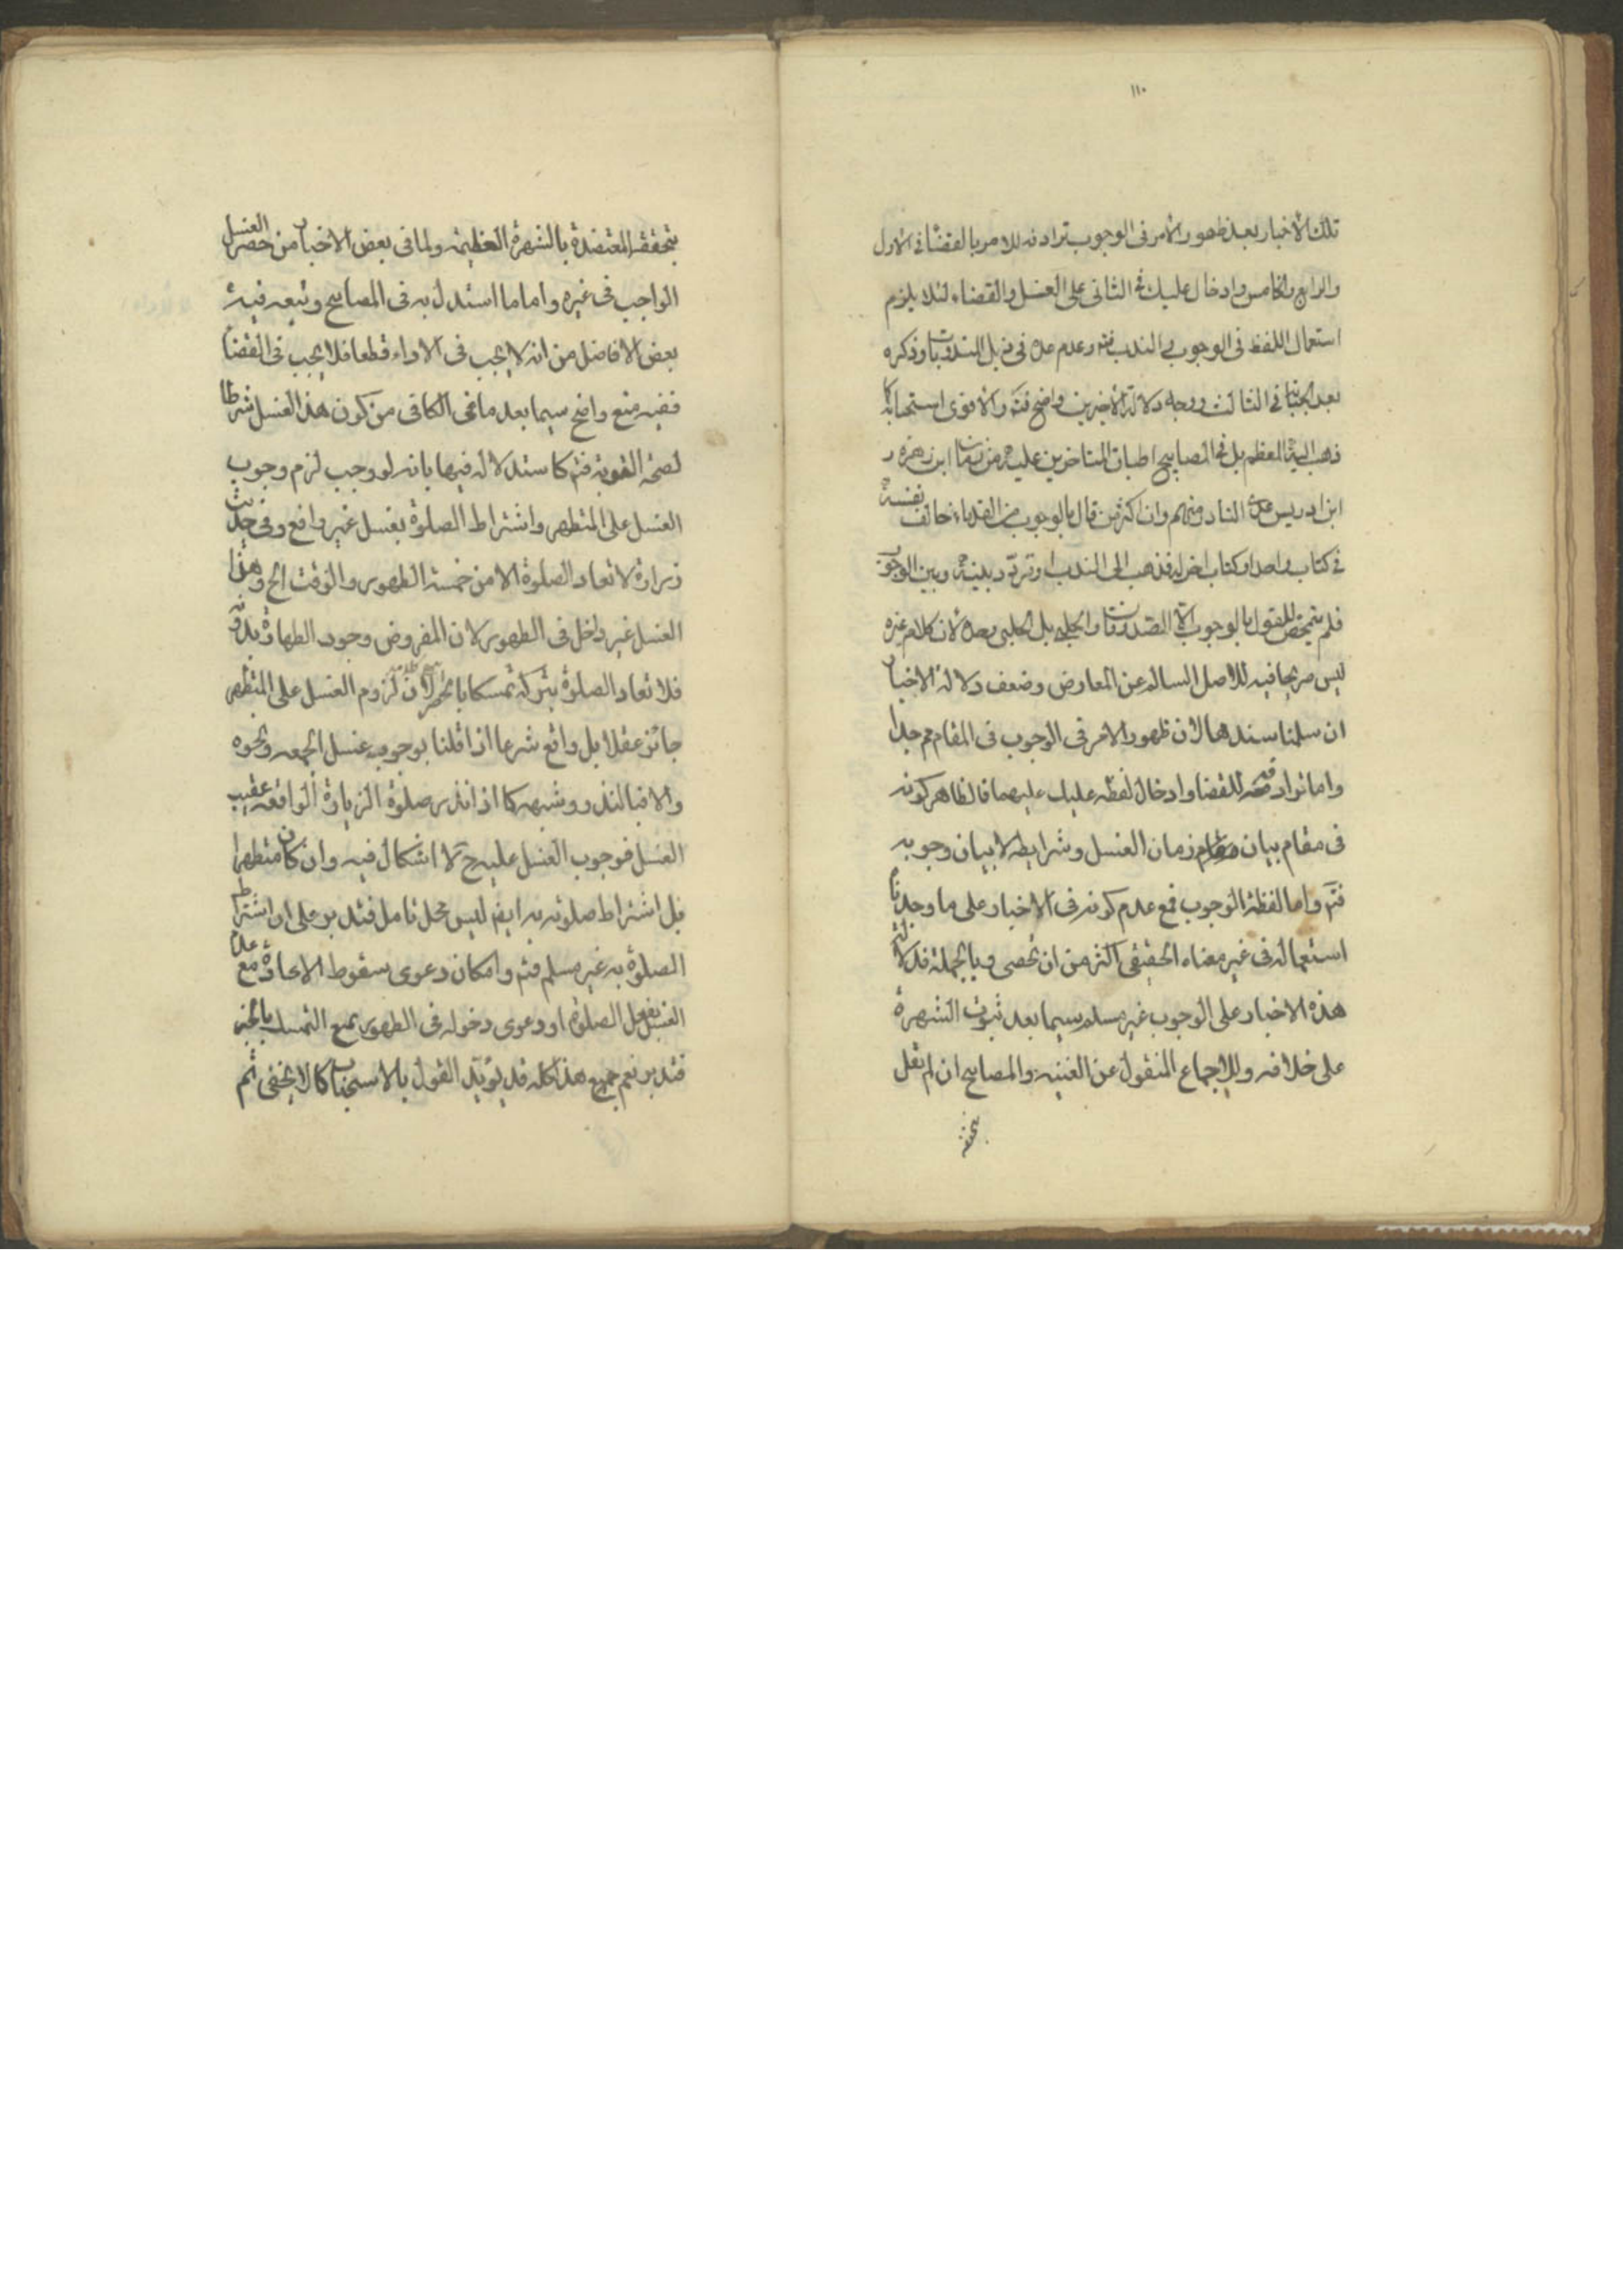 ١١٠
تلك الاخبار بعد ظهور الامر فى الوجوب ترادفه للامر بالقضا فى الاول
والرابع والخامس وادخال عليك فى الثانى على الغسل والقضاء لئلا يلزم
استعمال اللفظ فى الوجوب والندب فيه وعدم عده فى ذيل المندوبات وذكره
بعد الجنابة فى الثالث ووجه دلالة الاخيرين واضح فت والاقوى استحبابه كما
ذهب اليه المعظم بل فى المصابيح اطباق المتاخرين عليه من زمان ابن زهرة و
ابن ادريس عدى النادر منهم وان اكثر من قال بالوجوب من القدماء خالف نفسه
فى كتاب واحد او كتاب اخر له فذهب الى الندب او تردد بينه وبين الوجوب
فلم يتمحض للقول بالوجوب الا الصدوقان والحلبى بل الحلبى وحده لان كلام غيره
ليس صريحا فيه للاصل السالم عن المعارض وضعف دلالة الاخبار
ان سلمنا سندها لان ظهور الامر فى الوجوب فى المقام مم جدا
واما ترادفه للقضا وادخال لفظه عليك عليهما فالظاهر كونه
فى مقام بيان زمان الغسل وشرايطه لا بيان وجوبه
فت واما لفظة الوجوب فمع عدم كونه فى الاخبار على ما وجدنا
استعماله فى غير معناه الحقيقى اكثر من ان تحصى وبالجملة فدلالة
هذه الاخبار على الوجوب غير مسلم سيما بعد ثبوت الشهرة
على خلافه وللاجماع المنقول عن الغنيه والمصابيح ان لم نقل
بتحققه
بتحققه المعتضدة بالشهرة العظيمة ولما فى بعض الاخبار من حصر الغسل
الواجب فى غيره واما ما استدل به فى المصابيح وتبعه فيه
بعض الافاضل من انه لا يجب فى الاداء قطعا فلا يجب فى القضا
ففيه منع واضح سيما بعد ما فى الكافى من كون هذا الغسل شرطا
لصحة التوبة فتم كاستدلاله فيها بانه لو وجب لزم وجوب
الغسل على المتطهر واشتراط الصلوة بغسل غير رافع وفى حديث
زرارة لا تعاد الصلوة الا من خمسة الطهور والوقت الخ وهذا
الغسل غير داخل فى الطهور لان المفروض وجود الطهارة بدونه
فلا تعاد الصلوة بتركه تمسكا بالحصر لان لزوم الغسل على المتطهر
جائز عقلا بل واقع شرعا اذا قلنا بوجوب غسل الجمعه ونحوه
والا فبالنذر وشبهه كما اذا نذر صلوة الزيارة الواقعة عقيب
الغسل فوجوب الغسل عليه ح لا اشكال فيه وان كان متطهرا
بل اشتراط صلوته به ايضا ليس محل تامل فتدبر على ان اشتراط
الصلوة به غير مسلم فتم وامكان دعوى سقوط الاعادة مع عدم
الغسل بفعل الصلوة او دعوى دخوله فى الطهور يمنع التمسك بالخبر
فتدبر نعم جميع هذا كله قد يؤيد القول بالاستحباب كما لا يخفى ثم